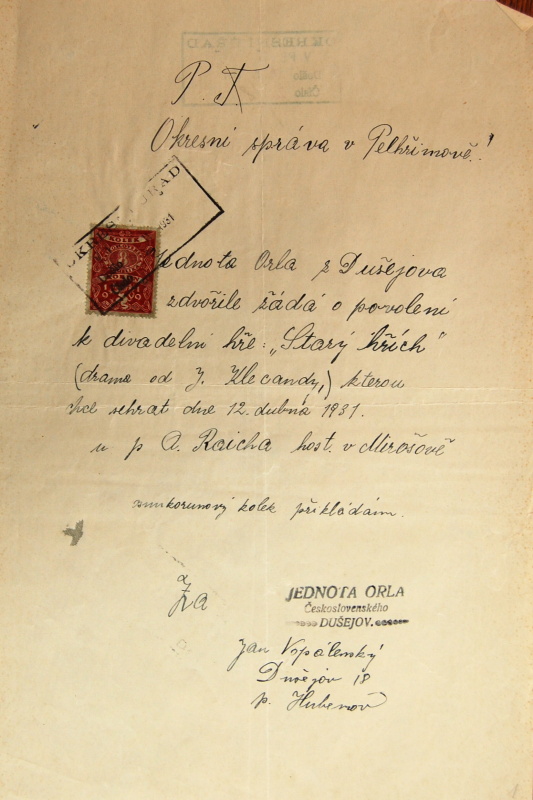 P. T.
Okresní správa v Pelhřimově!
OKRESNÍ ÚŘAD
1931
KOLEK
Jednota Orla z Dušejova
zdvořile žádá o povolení
k divadelní hře: „Starý hřích"
(drama od J. Klecandy,) kterou
chce sehrát dne 12. dubna 1931.
u p A. Raicha host. v Mirošově
korunový kolek přikládám.
Za
JEDNOTA ORLA
Československého
DUŠEJOV.
Jan Vopálenský
Dušejov 18
p. Hubenov